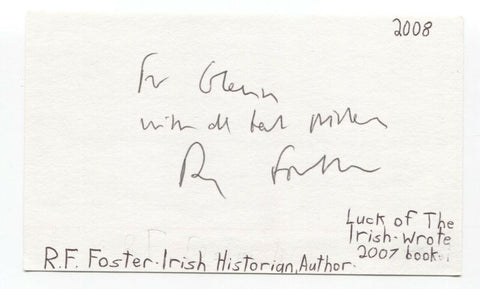 2008
For Glenn
with all best wishes
Roy Foster
Luck of The
Irish-Wrote
2007 book.
R.F. Foster-Irish Historian, Author.